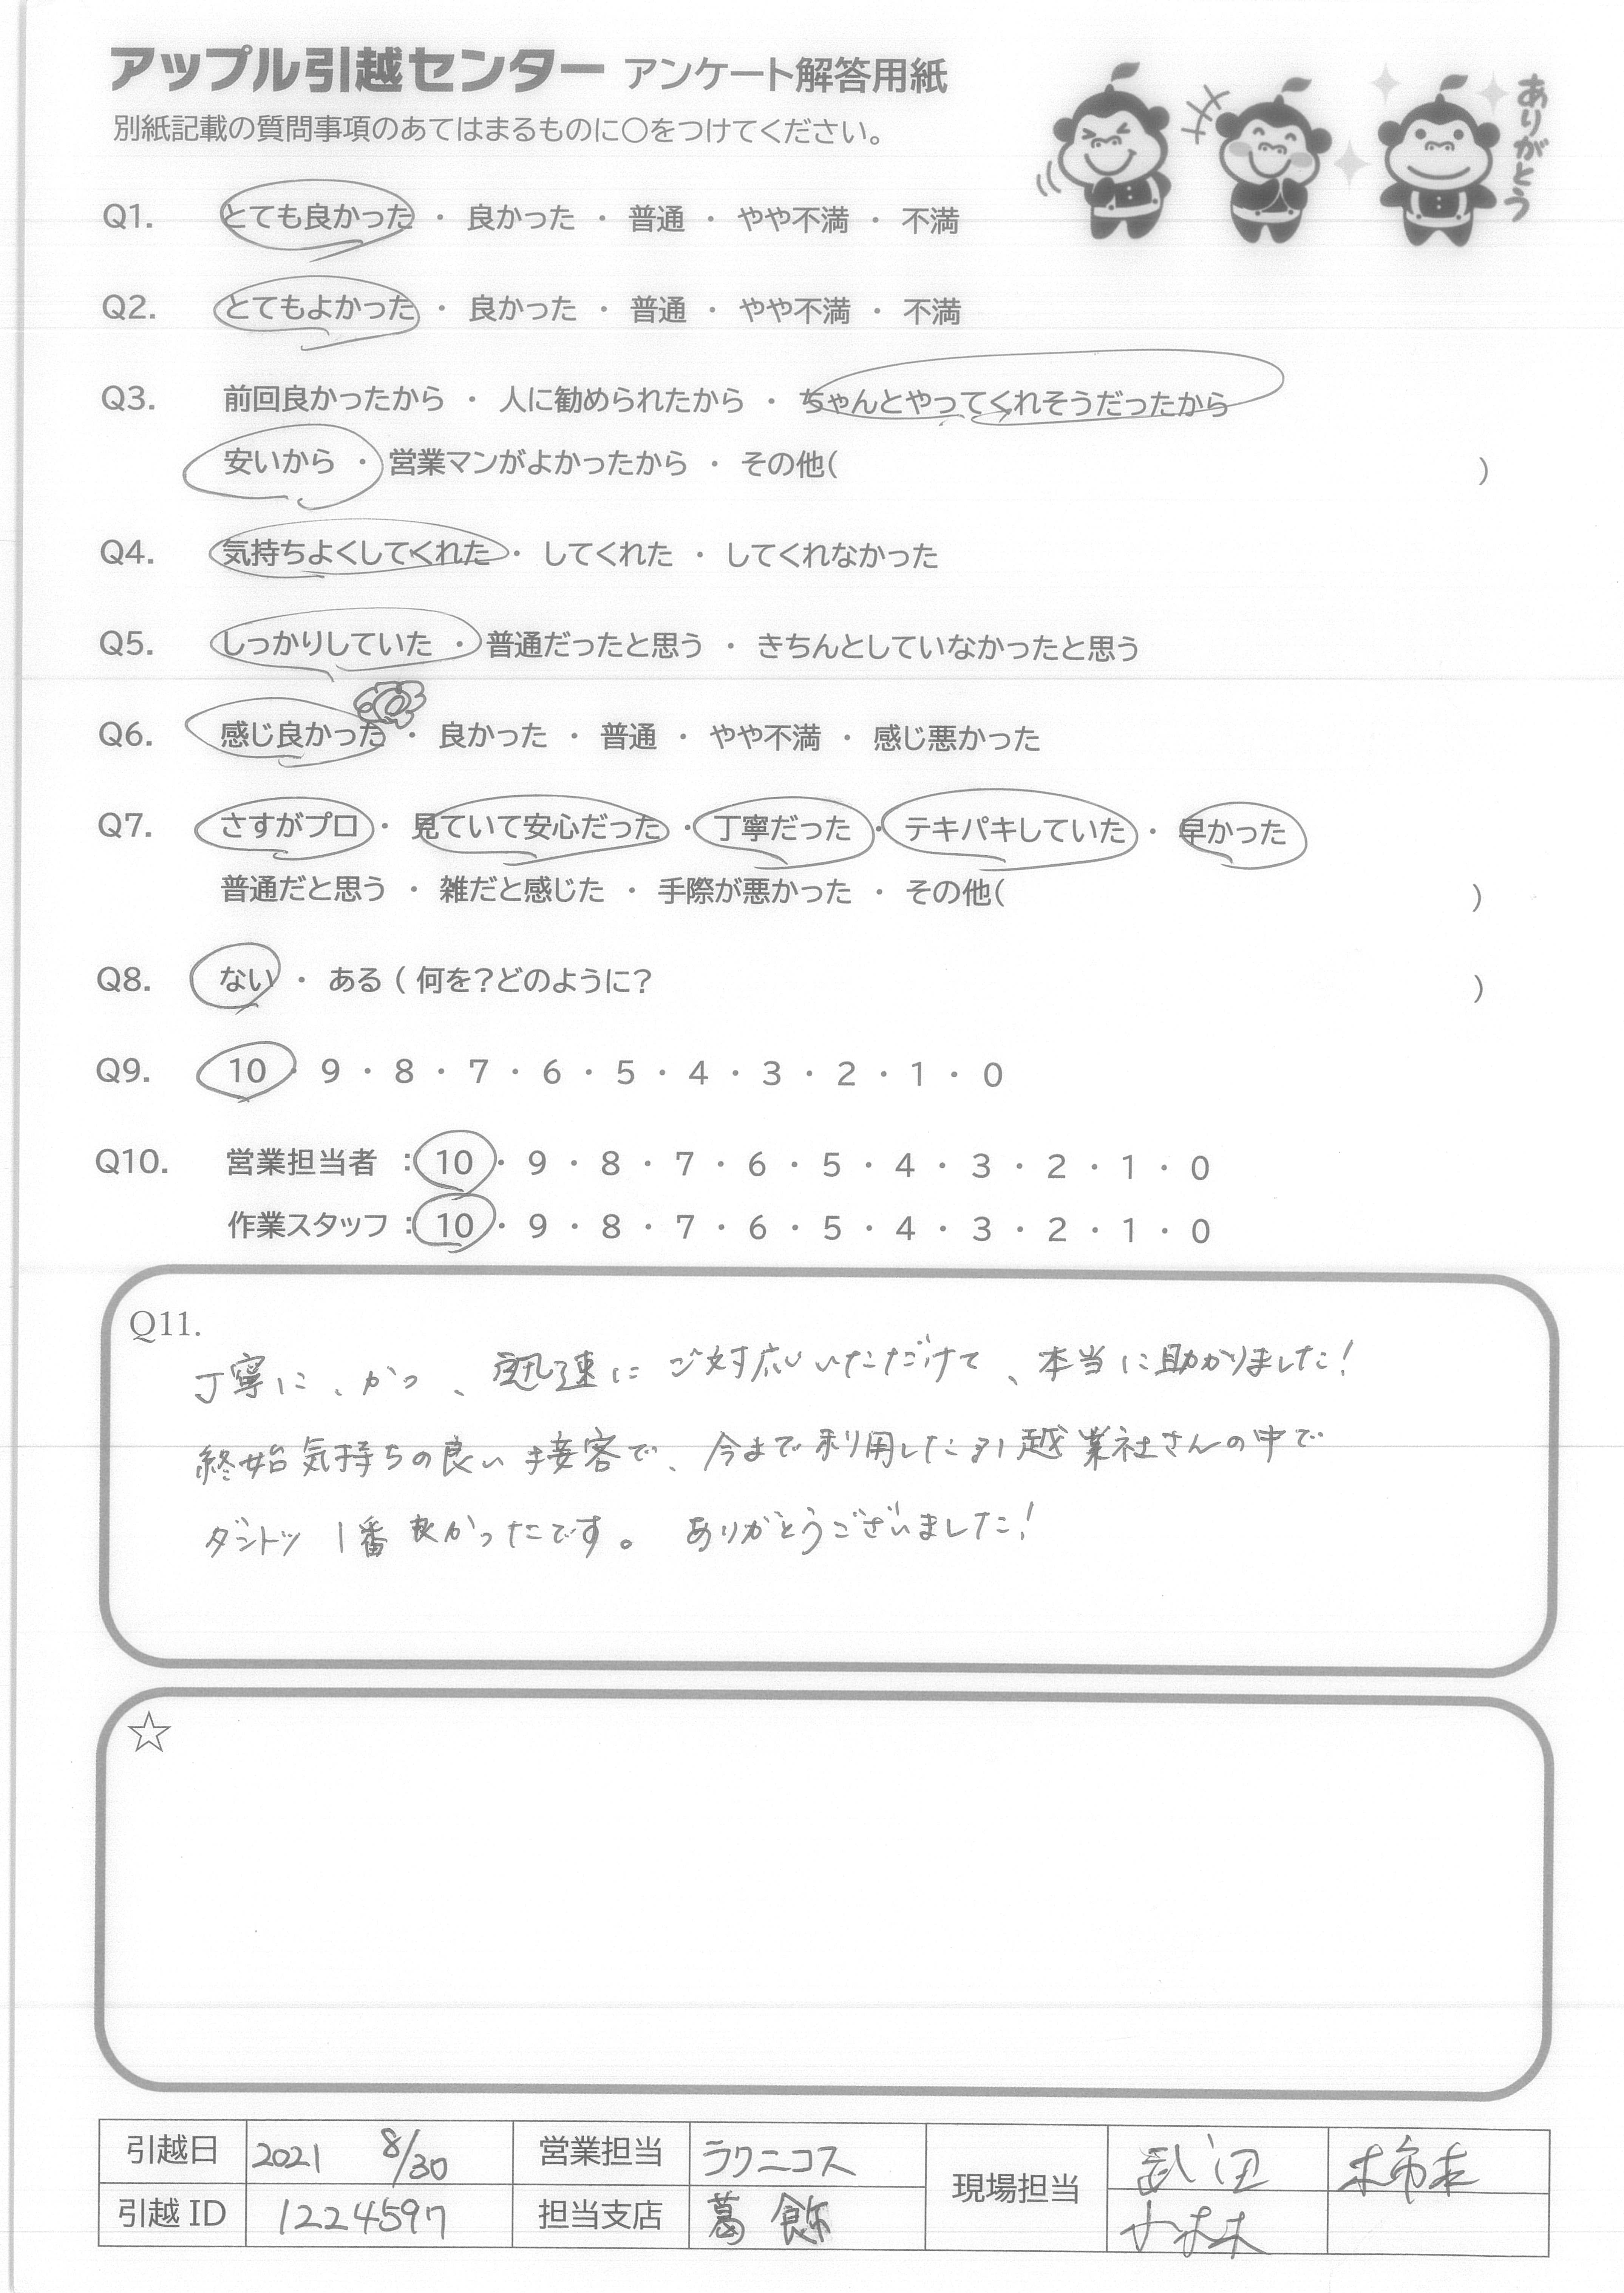 アップル引越センター アンケート解答用紙
別紙記載の質問事項のあてはまるものに○をつけてください。
ありがとう
Q1. とても良かった ・ 良かった ・ 普通 ・ やや不満 ・ 不満
Q2. とてもよかった ・ 良かった ・ 普通 ・ やや不満 ・ 不満
Q3. 前回良かったから ・ 人に勧められたから ・ ちゃんとやってくれそうだったから
安いから ・ 営業マンがよかったから ・ その他( )
Q4. 気持ちよくしてくれた ・ してくれた ・ してくれなかった
Q5. しっかりしていた ・ 普通だったと思う ・ きちんとしていなかったと思う
Q6. 感じ良かった ・ 良かった ・ 普通 ・ やや不満 ・ 感じ悪かった
Q7. さすがプロ ・ 見ていて安心だった ・ 丁寧だった ・ テキパキしていた ・ 早かった
普通だと思う ・ 雑だと感じた ・ 手際が悪かった ・ その他( )
Q8. ない ・ ある ( 何を?どのように? )
Q9. 10 ・ 9 ・ 8 ・ 7 ・ 6 ・ 5 ・ 4 ・ 3 ・ 2 ・ 1 ・ 0
Q10. 営業担当者 : 10 ・ 9 ・ 8 ・ 7 ・ 6 ・ 5 ・ 4 ・ 3 ・ 2 ・ 1 ・ 0
作業スタッフ : 10 ・ 9 ・ 8 ・ 7 ・ 6 ・ 5 ・ 4 ・ 3 ・ 2 ・ 1 ・ 0
Q11.
丁寧に、かつ、迅速に ご対応いただけて、本当に助かりました!
終始気持ちの良い接客で、今まで利用した引越業社さんの中で
ダントツ 1番良かったです。 ありがとうございました!
☆
引越日 2021 8/30 営業担当 ラクニコス 現場担当 武田 柿本
引越 ID 1224597 担当支店 葛飾 小林